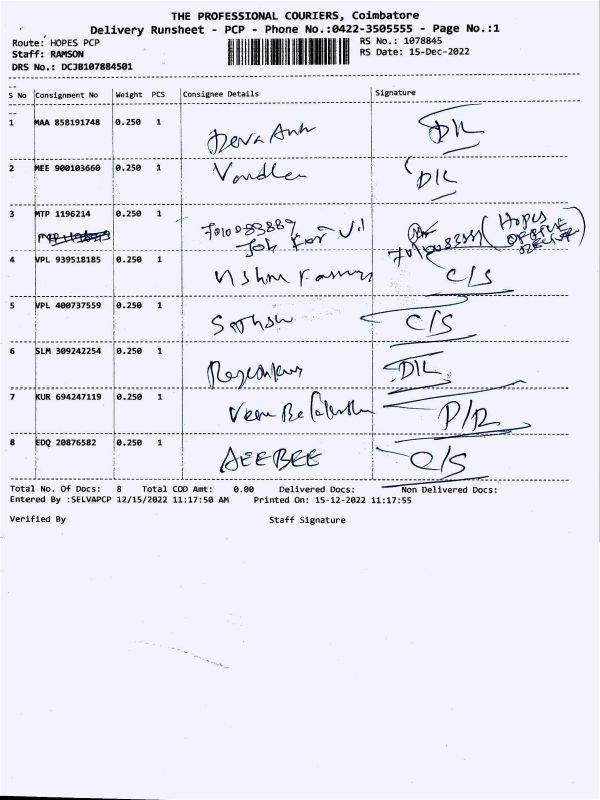 THE PROFESSIONAL COURIERS, Coimbatore
Delivery Runsheet - PCP - Phone No.:0422-3505555 - Page No.:1
Route: HOPES PCP
RS No.: 1078845
Staff: RAMSON
RS Date: 15-Dec-2022
DRS No.: DCJB107884501
S No Consignment No Weight PCS Consignee Details Signature
1 MAA 858191748 0.250 1
2 MEE 900103660 0.250 1
3 MTP 1196214 0.250 1 7010083889
(Hopes
4 VPL 939518185 0.250 1 C/S
5 VPL 400737559 0.250 1 C/S
6 SLM 309242254 0.250 1
7 KUR 694247119 0.250 1 P/R
8 EDQ 20876582 0.250 1 AEEBEE
Total No. Of Docs: 8 Total COD Amt: 0.00 Delivered Docs: Non Delivered Docs:
Entered By :SELVAPCP 12/15/2022 11:17:50 AM Printed On: 15-12-2022 11:17:55
Verified By Staff Signature